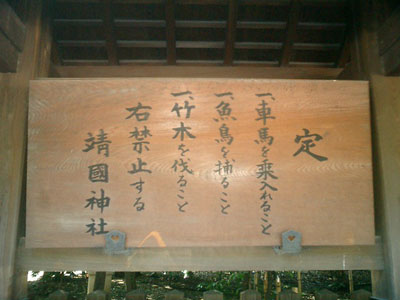 定
一、車馬を乗入れること
一、魚鳥を捕ること
一、竹木を伐ること
右禁止する
靖國神社